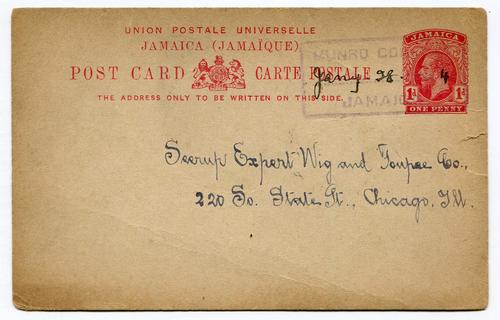 UNION POSTALE UNIVERSELLE
JAMAICA (JAMAÏQUE)
POST CARD CARTE POSTALE
THE ADDRESS ONLY TO BE WRITTEN ON THIS SIDE.
MUNRO CO
Jany 28. 4
JAMAIC
JAMAICA
1D 1D
ONE PENNY
Seerup Expert Wig and Toupee Co.,
220 So. State St., Chicago. Ill.